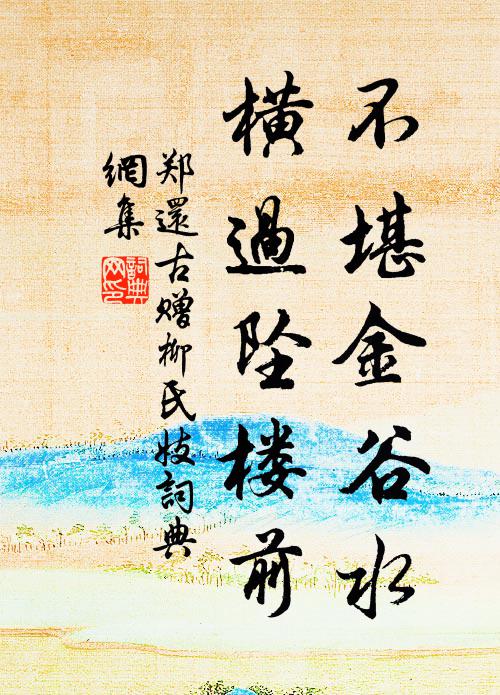 不堪金谷水
橫過坠楼前
郑還古赠柳氏妓詞典
網集
詞典网印